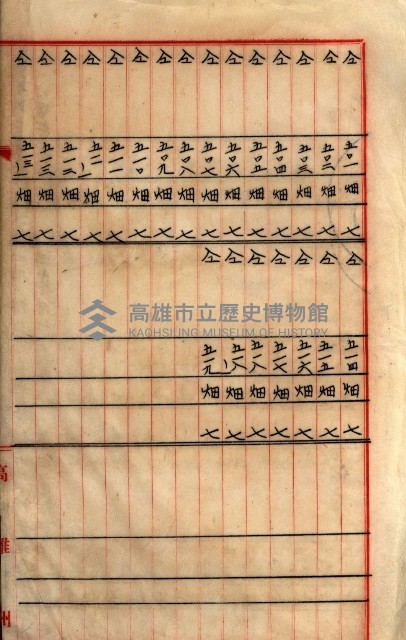 仝 五〇一 畑 七
仝 五〇二 畑 七
仝 五〇三 畑 七
仝 五〇四 畑 七
仝 五〇五 畑 七
仝 五〇六 畑 七
仝 五〇七 畑 七
仝 五〇八 畑 七
仝 五〇九 畑 七
仝 五一〇 畑 七
仝 五一一 畑 七
仝 五一一ノ一 畑 七
仝 五一二 畑 七
仝 五一三 畑 七
仝 五一三ノ一 畑 七
仝 五一四 畑 七
仝 五一五 畑 七
仝 五一六 畑 七
仝 五一七 畑 七
仝 五一八 畑 七
仝 五一八ノ一 畑 七
仝 五一九 畑 七
高雄州
高雄市立歷史博物館
KAOHSIUNG MUSEUM OF HISTORY